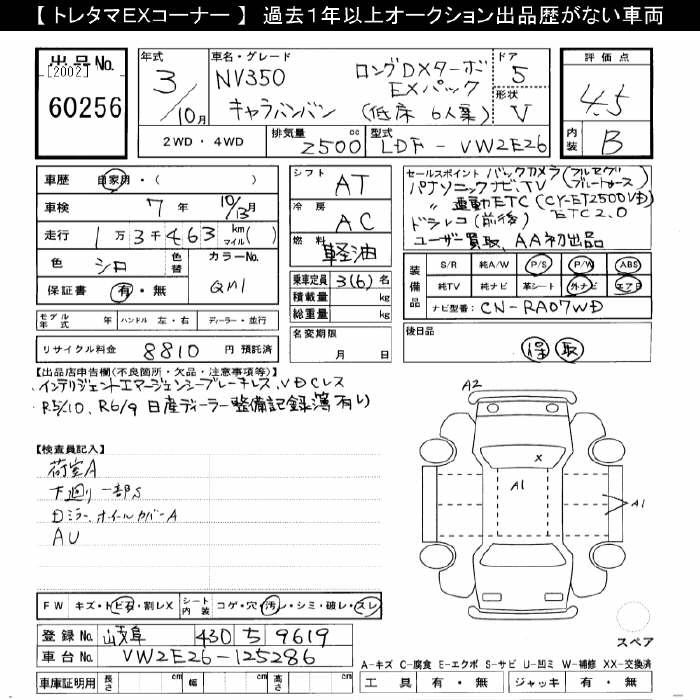 【 トレタマEXコーナー 】 過去1年以上オークション出品歴がない車両
出品No. [2002] 60256
年式 3/10月
車名・グレード NV350 キャラバンバン ロングDXターボ EXパック (低床 6人乗)
ドア 5
形状 V
2WD・4WD
排気量 2500 cc
型式 LDF-VW2E26
評価点 4.5
内装 B
車歴 自家用・( )
車検 7年 10/13月
走行 1万3千463 km マイル( )
色 シロ 色替 カラーNo. QM1
保証書 有・無
シフト AT
冷房 AC
燃料 軽油
乗車定員 3(6)名
積載量 kg
総重量 kg
セールスポイント バックカメラ(フルセグ/ブルートゥース)
パナソニックナビ、TV
〃 連動ETC (CY-ET2500VD)
ドラレコ(前後) ETC2.0
ユーザー買取、AA初出品
装備品 S/R 純A/W P/S P/W ABS
純TV 純ナビ 革シート 外ナビ エアB
ナビ型番 CN-RA07WD
モデル年式 年 ハンドル 左・右 ディーラー・並行
リサイクル料金 8810 円 預託済
名変期限 月 日
後日品 保 取
【出品店申告欄(不良箇所・欠品・注意事項等)】
インテリジェントエマージェンシーブレーキレス、VDCレス
R5/10、R6/9 日産ディーラー整備記録簿有り
【検査員記入】
荷室A
下廻り一部S
Dミラー、ホイルカバーA
AU
A2
X
A1
A1
FW キズ・トビ石・割レX シート内装 コゲ・穴・汚レ・シミ・破レ・スレ
登録No. 岐阜 430 ち 9619
車台No. VW2E26-125286
車庫証明用 長さ cm 幅 cm 高さ cm
スペア
A-キズ C-腐食 E-エクボ S-サビ U-凹ミ W-補修 XX-交換済
工具 有・無 ジャッキ 有・無